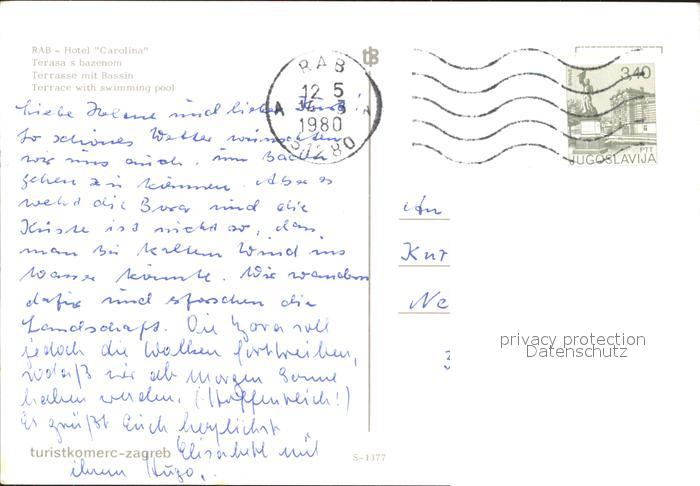 RAB – Hotel "Carolina"
Terasa s bazenom
Terrasse mit Bassin
Terrace with swimming pool
Liebe Helene und lieber
So schönes Wetter wünschten
wir uns auch, um baden
gehen zu können. Aber es
weht die Bora und die
Küste ist nicht so, daß
man bei kaltem Wind ins
Wasser könnte. Wir wandern
dafür und erforschen die
Landschaft. Die Bora soll
jedoch die Wolken fortreiben,
sodaß wir ab morgen Sonne
haben werden. (Hoffentlich!)
Es grüßt Euch herzlichst
Elisabeth mit
ihrem Hugo.
turistkomerc-zagreb
S-1377
RAB
12 5
1980
51280
3,40
PTT
JUGOSLAVIJA
An
Kur
Ne
privacy protection
Datenschutz